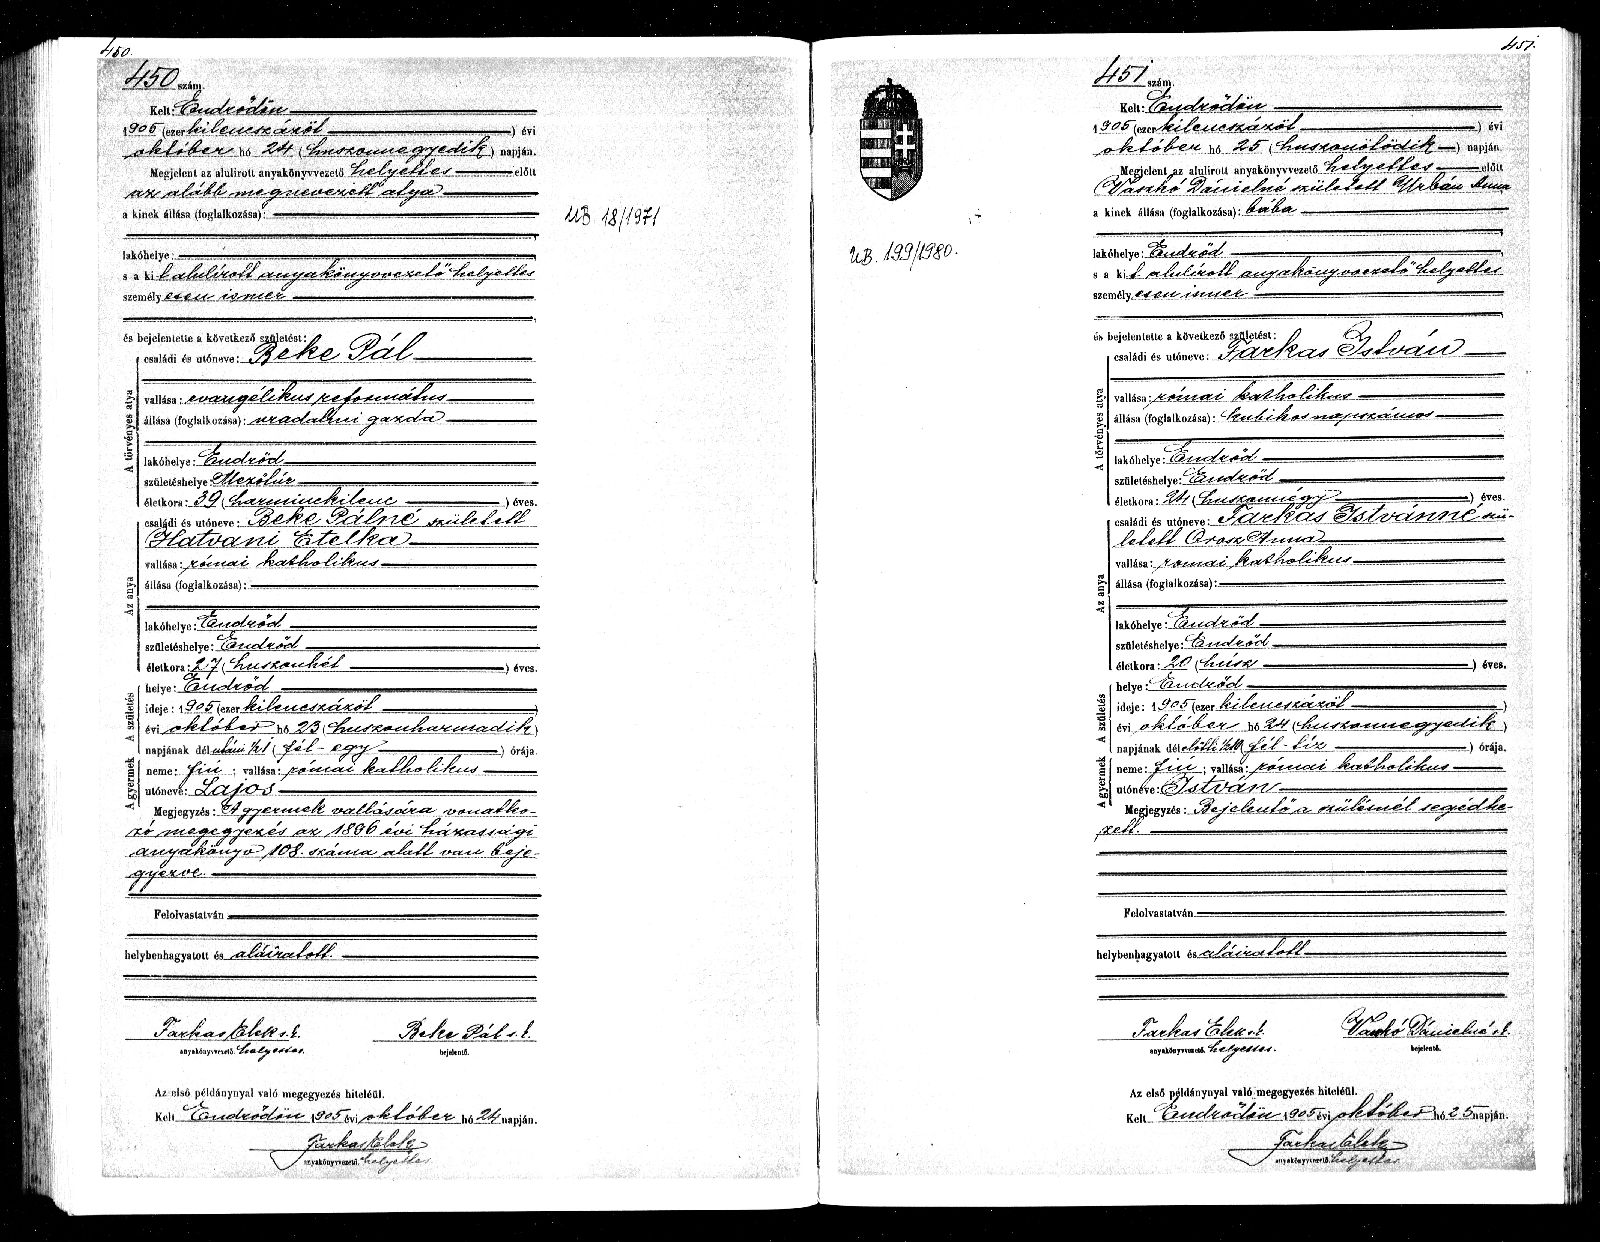 450.
450 szám.
Kelt: Endrődön
1905 (ezerkilenczszázöt) évi
október hó 24 (huszonnegyedik) napján.
Megjelent az alulirott anyakönyvvezető helyettes előtt
az alább megnevezett atya
a kinek állása (foglalkozása):
lakóhelye:
s a kit alulírott anyakönyvvezető helyettes
személyesen ismer
és bejelentette a következő születést:
A törvényes atya
családi és utóneve: Beke Pál
vallása: evangélikus református
állása (foglalkozása): uradalmi gazda
lakóhelye: Endrőd
születéshelye: Mezőtúr
életkora: 39 (harminckilenc) éves.
Az anya
családi és utóneve: Beke Pálné született
Hatvani Etelka
vallása: római katholikus
állása (foglalkozása):
lakóhelye: Endrőd
születéshelye: Endrőd
életkora: 27 (huszonhét) éves.
A születés
helye: Endrőd
ideje: 1905 (ezerkilenczszázöt)
évi október hó 23 (huszonharmadik)
napjának délutáni ½1 (fél-egy) órája.
A gyermek
neme: fiú; vallása: római katholikus
utóneve: Lajos
Megjegyzés: A gyermek vallására vonatko-
zó megegyezés az 1896 évi házassági
anyakönyv 108. száma alatt van beje-
gyezve.
Felolvastatván
helybenhagyatott és aláiratott.
Farkas Elek s. k. Beke Pál s. k.
anyakönyvvezető. helyettes. bejelentő.
Az első példánynyal való megegyezés hiteléül.
Kelt Endrődön 1905 évi október hó 24 napján.
Farkas Elek
anyakönyvvezető. helyettes
UB 18/1971
451.
451 szám.
Kelt: Endrődön
1905 (ezerkilenczszázöt) évi
október hó 25 (huszonötödik) napján.
Megjelent az alulirott anyakönyvvezető helyettes előtt
Vaszkó Dánielné született Urbán Anna
a kinek állása (foglalkozása): bába
lakóhelye: Endrőd
s a kit alulírott anyakönyvvezető helyettes
személyesen ismer
és bejelentette a következő születést:
A törvényes atya
családi és utóneve: Farkas István
vallása: római katholikus
állása (foglalkozása): kubikos napszámos
lakóhelye: Endrőd
születéshelye: Endrőd
életkora: 24 (huszonnégy) éves.
Az anya
családi és utóneve: Farkas Istvánné szü-
letett Orosz Anna
vallása: római katholikus
állása (foglalkozása):
lakóhelye: Endrőd
születéshelye: Endrőd
életkora: 20 (húsz) éves.
A születés
helye: Endrőd
ideje: 1905 (ezerkilenczszázöt)
évi október hó 24 (huszonnegyedik)
napjának délelőtti ½10 (fél-tíz) órája.
A gyermek
neme: fiú; vallása: római katholikus
utóneve: István
Megjegyzés: Bejelentő a szülésnél segédke-
zett.
Felolvastatván
helybenhagyatott és aláiratott
Farkas Elek s. k. Vaszkó Dánielné s. k.
anyakönyvvezető. helyettes. bejelentő.
Az első példánynyal való megegyezés hiteléül.
Kelt Endrődön 1905 évi október hó 25 napján.
Farkas Elek
anyakönyvvezető. helyettes
UB. 199/1980.